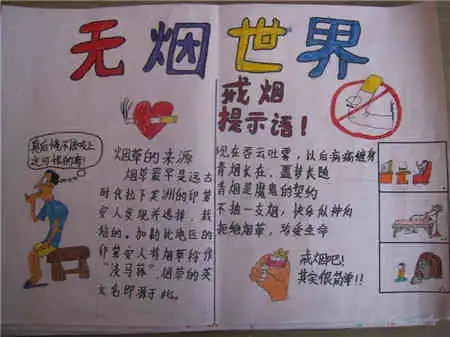 无烟世界
戒烟
提示语!
真后悔不该吸上
这可怕的毒!
烟草的来源
烟草最早是远古
时代拉丁美洲的印第
安人发现并选择、栽
植的。加勒比地区的
印第安人将烟草称作
“淡马菰”,烟草的英
文名即源于此。
现在吞云吐雾,以后病痛缠身
青烟长在,噩梦长随
香烟是魔鬼的契约
不抽一支烟,快乐似神仙
拒绝烟草,珍爱生命
戒烟吧!
其实很简单!!